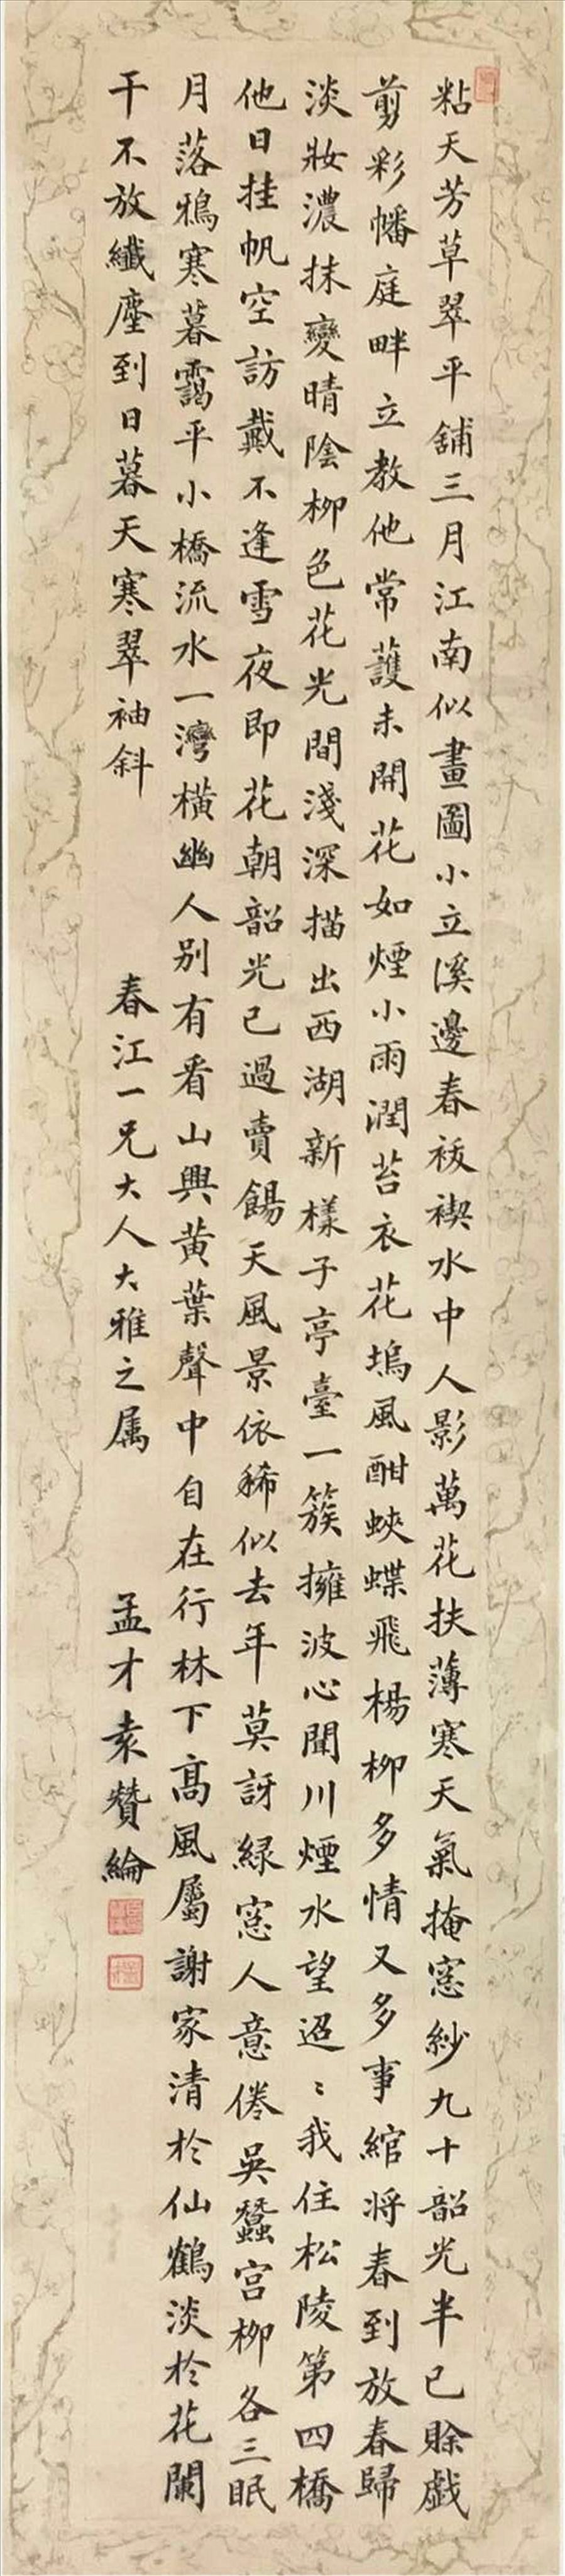 粘天芳草翠平鋪三月江南似畫圖小立溪邊春祓禊水中人影萬花扶薄寒天氣掩窓紗九十韶光半已賒戲
剪彩幡庭畔立教他常護未開花如煙小雨潤苔衣花塢風酣蛺蝶飛楊柳多情又多事綰將春到放春歸
淡妝濃抹變晴陰柳色花光間淺深描出西湖新樣子亭臺一簇擁波心闉川煙水望迢〻我住松陵第四橋
他日挂帆空訪戴不逢雪夜即花朝韶光已過賣餳天風景依稀似去年莫訝綠窓人意倦吳蠶宮柳各三眠
月落鴉寒暮靄平小橋流水一灣橫幽人別有看山興黃葉聲中自在行林下高風屬謝家清於仙鶴淡於花闌
干不放纖塵到日暮天寒翠袖斜
春江一兄大人大雅之属
孟才袁贊綸